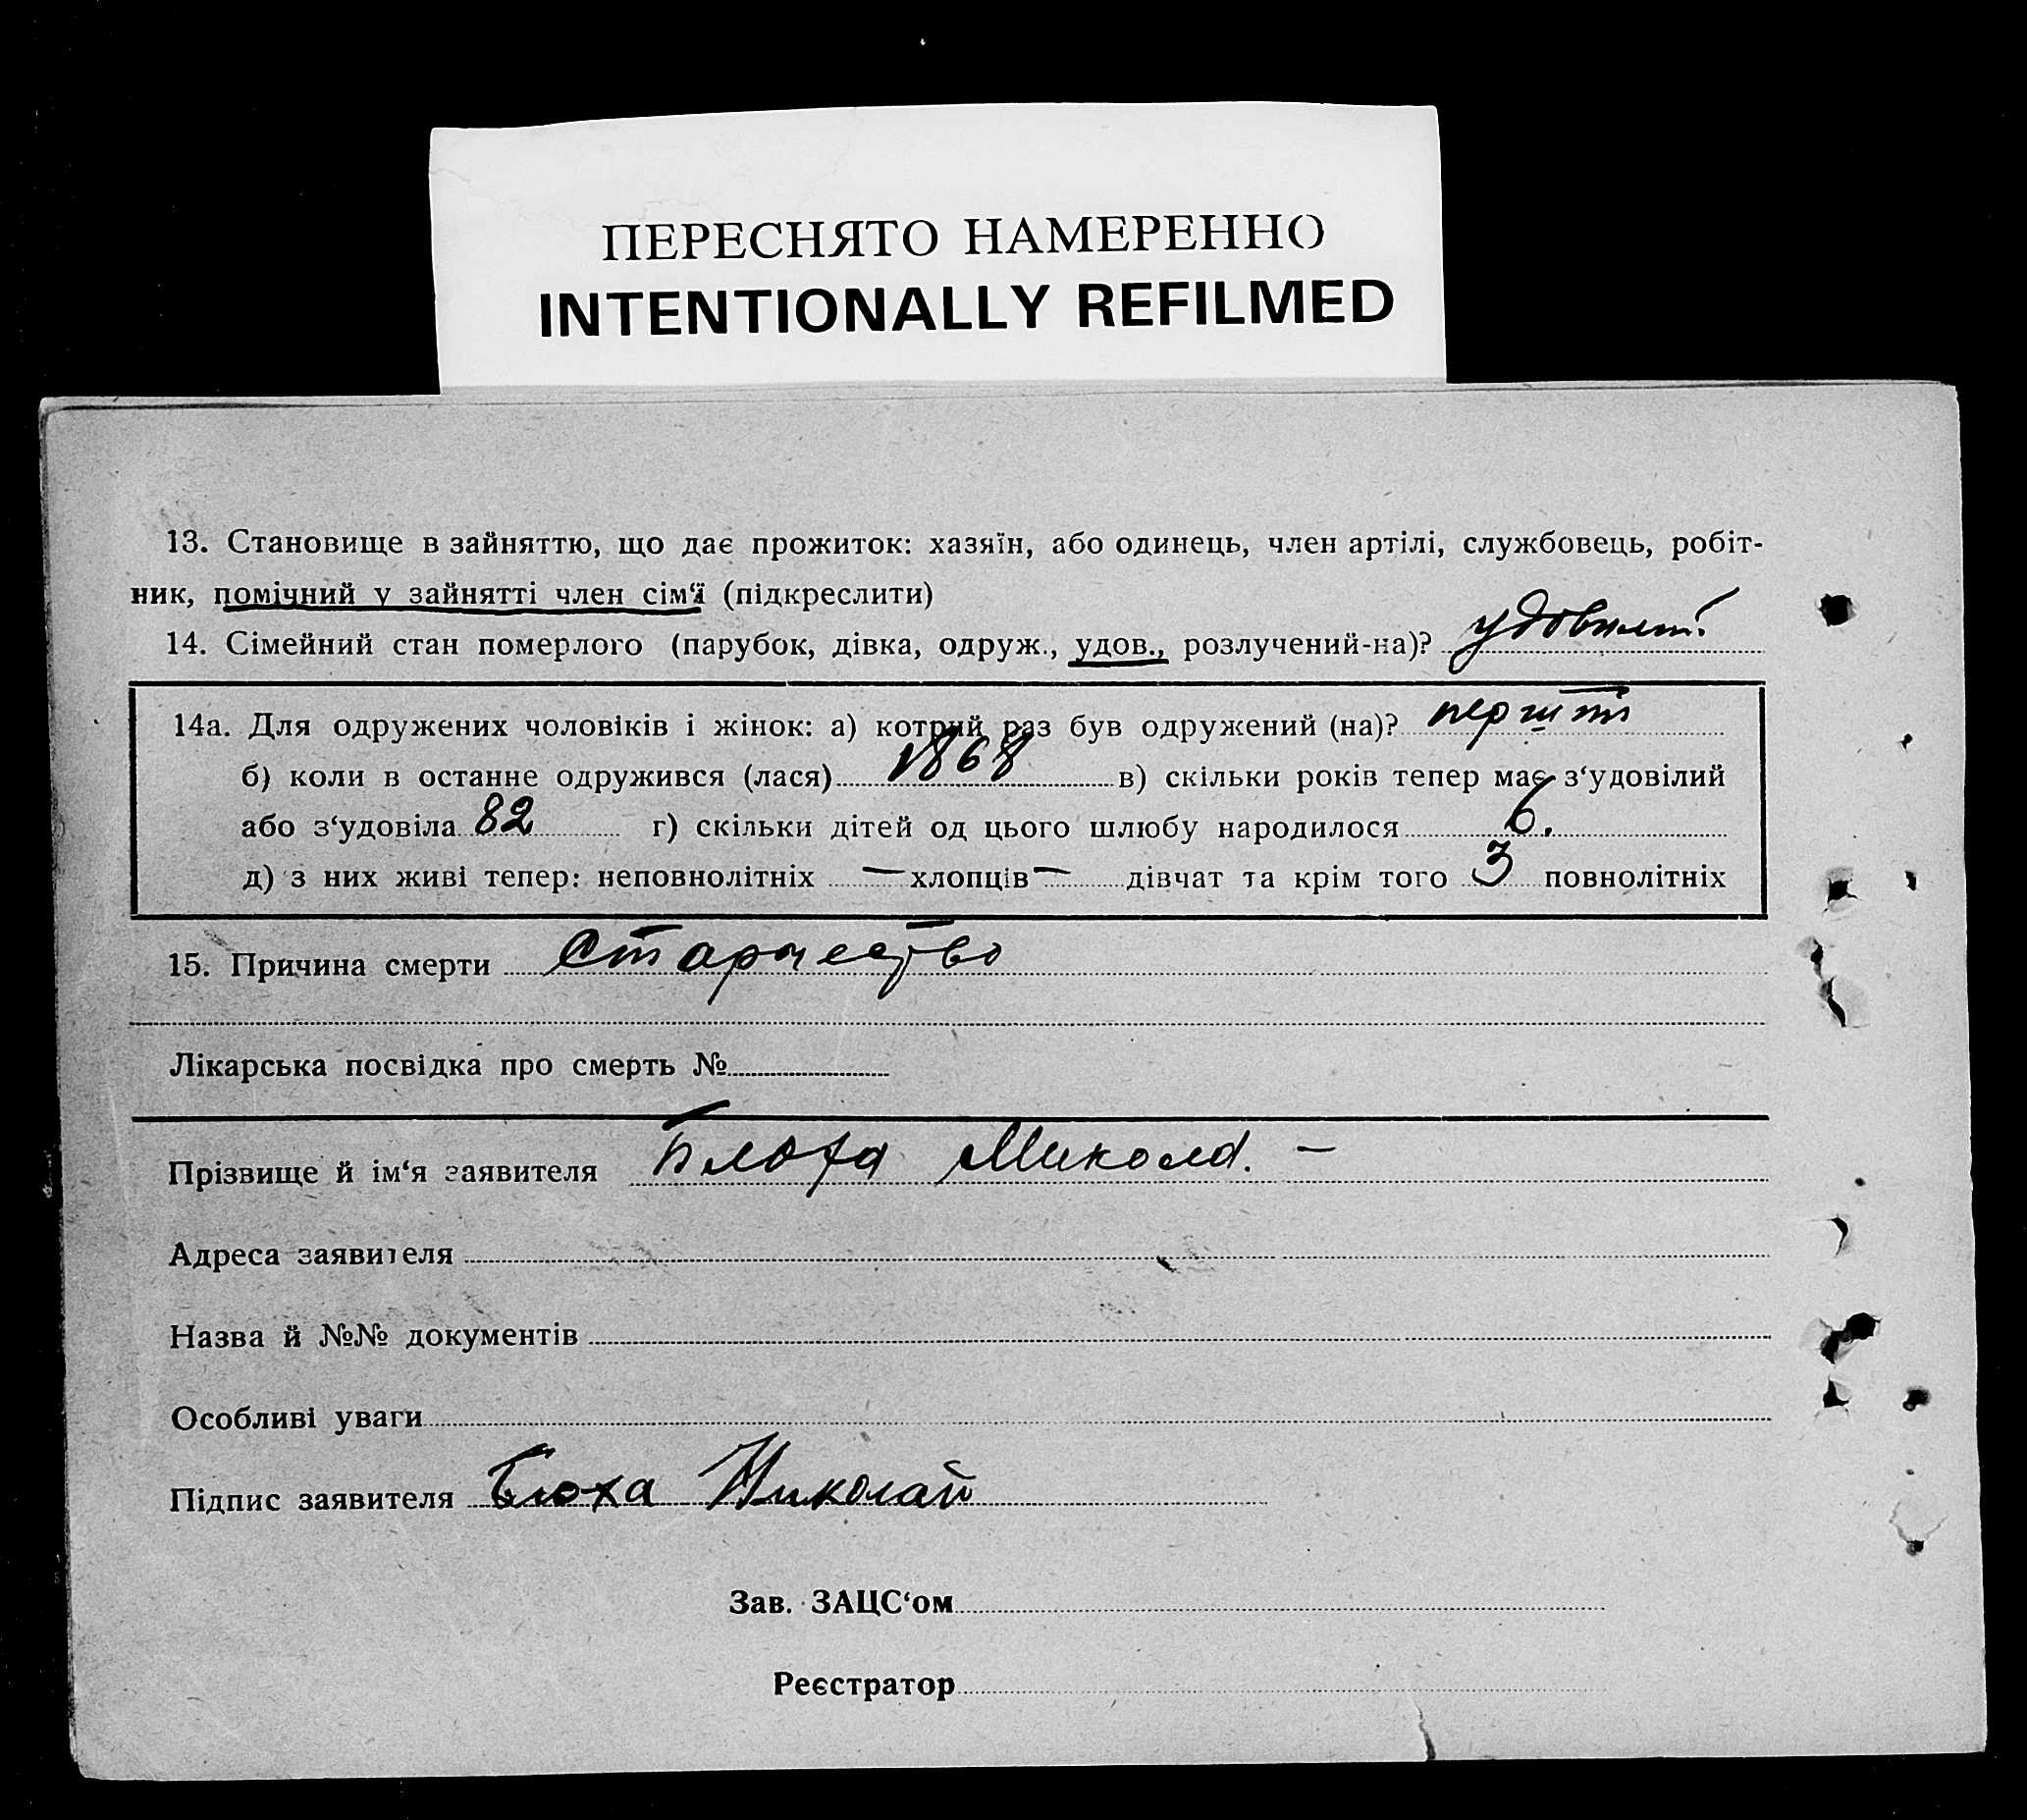 ПЕРЕСНЯТО НАМЕРЕННО
INTENTIONALLY REFILMED
13. Становище в зайняттю, що дає прожиток: хазяїн, або одинець, член артілі, службовець, робіт-
ник, помічний у зайнятті член сім‘ї (підкреслити)
14. Сімейний стан померлого (парубок, дівка, одруж., удов., розлучений-на)?
14а. Для одружених чоловіків і жінок: а) котрий раз був одружений (на)? перший
б) коли в останнє одружився (лася) 1868 в) скільки років тепер має з‘удовілий
або з‘удовіла 82 г) скільки дітей од цього шлюбу народилося 6.
д) з них живі тепер: неповнолітніх — хлопців — дівчат та крім того 3 повнолітніх
15. Причина смерти
Лікарська посвідка про смерть №
Прізвище й ім‘я заявителя Блоха Микола. —
Адреса заявителя
Назва й №№ документів
Особливі уваги
Підпис заявителя Блоха Николай
Зав. ЗАЦС‘ом
Реєстратор